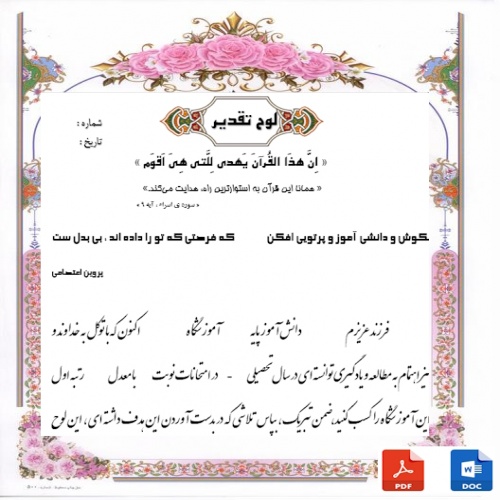 لوح تقدیر
شماره :
تاریخ :
« اِنَّ هٰذَا القُرآنَ یَهدی لِلَّتی هِیَ اَقوَم »
« همانا این قرآن به استوارترین راه، هدایت می‌کند.»
« سوره ی اسراء ، آیه ۹ »
بکوش و دانشی آموز و پرتویی افکن که فرصتی که تو را داده اند ، بی بدل ست
پروین اعتصامی
فرزند عزیزم دانش آموز پایه آموزشگاه اکنون که با توکل به خداوند و
نیز اهتمام به مطالعه و یادگیری توانسته ای در سال تحصیلی - در امتحانات نوبت با معدل رتبه اول
این آموزشگاه را کسب کنید، ضمن تبریک، بپاس تلاشی که در بدست آوردن این هدف داشته ای، این لوح
PDF
DOC